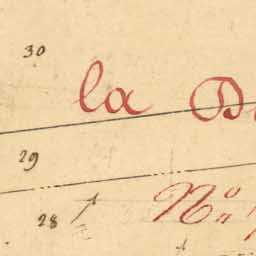 30
la
29
28 N°